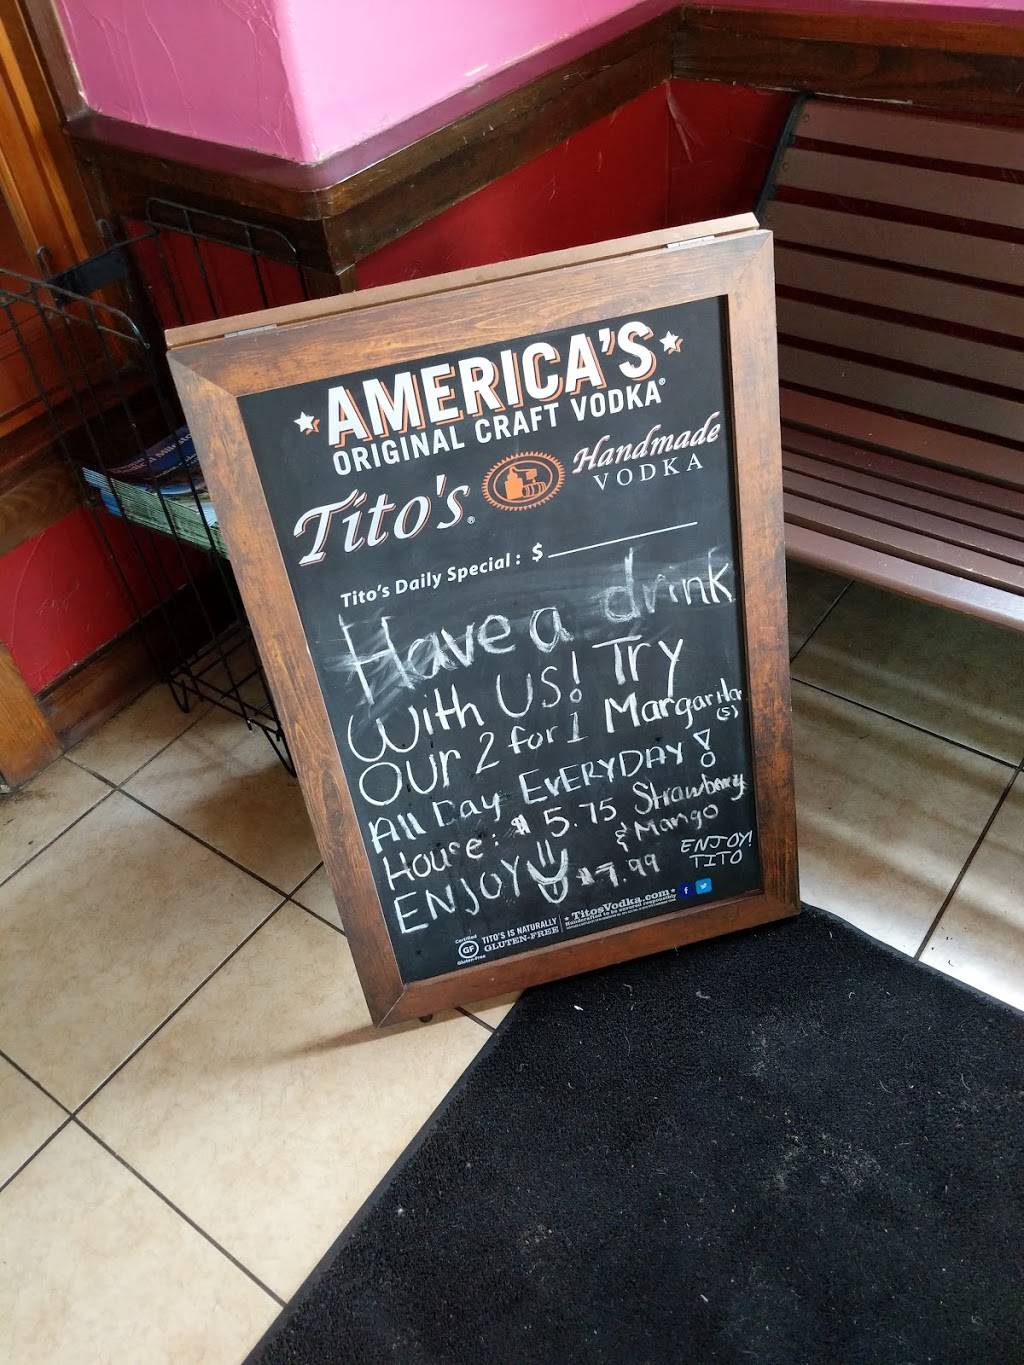 AMERICA'S
ORIGINAL CRAFT VODKA®
Tito's® Handmade
VODKA
Tito's Daily Special : $
Have a drink
With US! Try
OUr 2 for 1 Margarita(s)
All Day EVERYDAY!
House: $5.75 Strawberry
& Mango
ENJOY $7.99
ENJOY!
TITO
Certified
GF
Gluten-Free
TITO'S IS NATURALLY
GLUTEN-FREE
TitosVodka.com
Handcrafted to be savored responsibly